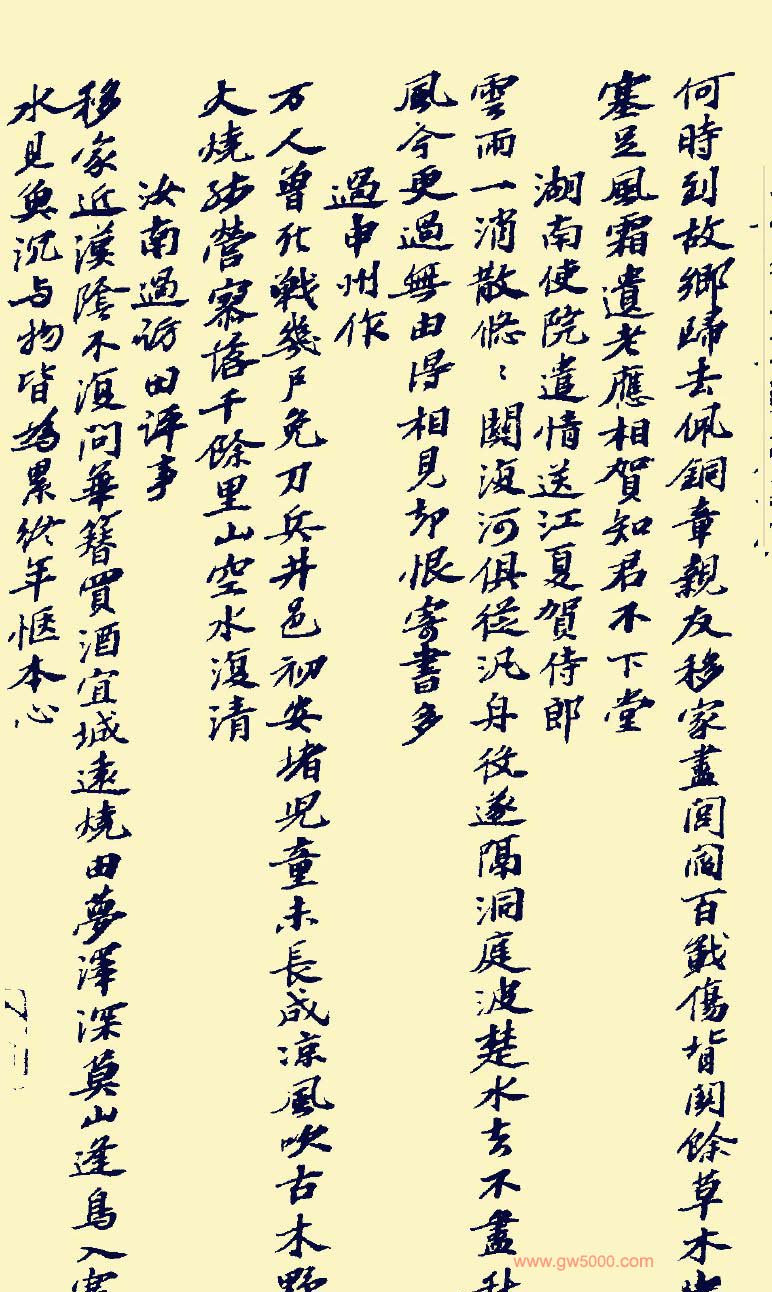 何時到故鄉歸去佩銅章親友移家盡閭閻百戰傷背關餘草木出
塞足風霜遺老應相賀知君不下堂
湖南使院遣情送江夏賀侍郎
雲雨一消散悠〻關復河俱從汎舟役遂隔洞庭波楚水去不盡秋
風今更過無由得相見却恨寄書多
過申州作
万人曽死戰幾戶免刀兵井邑初安堵児童未長成凉風吹古木野
火燒殘營寥落千餘里山空水復清
汝南過訪田評事
移家近漢陰不復問華簪買酒宜城遠燒田夢澤深莫山逢鳥入寒
水見魚沉与物皆為累終年愜本心
www.gw5000.com